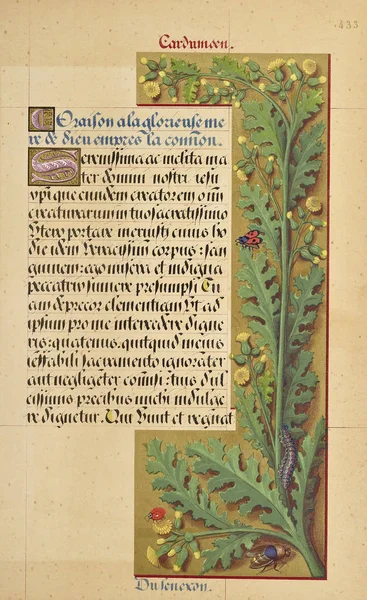 Cardumeen.
433
Oraison a la glorieuse me
re de dieu empres la comion.
Serenissima ac inclita ma
ter domini nostri iesu
xpi que eundem creatorem omni
creaturarum in tuo sacratissimo
Utero portare meruisti cuius ho
die idem veracissimum corpus: san
guinem: ego misera et indigna
peccatrix sumere presumpsi Tu
am deprecor clementiam Ut ad
ipsum pro me intercedere digne
ris: quatenus. quitquid in eius
ieffabili sacramento ignoranter
aut negligeter comisi: tuis dul
cissimis precibus michi indulge
re dignetur. Qui vivit et regnat
Du senexon.